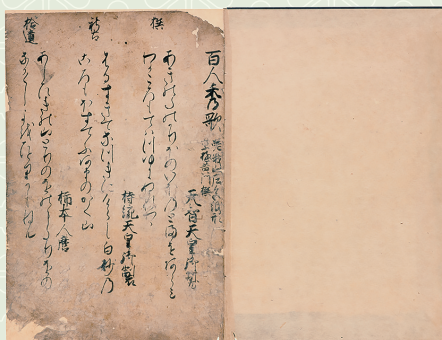 百人秀歌
嵯峨山庄色紙形
京極黄門撰
天智天皇御製
撰
あきのたのかりほのいほのとまをあらみ
わかころもてはつゆにぬれつゝ
持統天皇御製
新古
はるすきてなつきにけらし白妙乃
ころもほすてふあまのかく山
柿本人麿
拾遺
あしひきの山とりのをのしたりをの